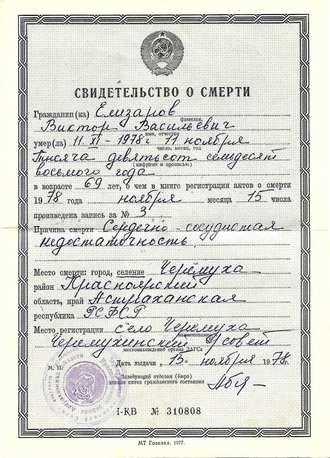 СВИДЕТЕЛЬСТВО О СМЕРТИ
Гражданин(ка) Елизаров
фамилия,
Виктор Васильевич
имя, отчество
умер(ла) 11 XI - 1978 г 11 ноября
число, месяц, год
Тысяча девятьсот семидесят
(цифрами и прописью)
восьмого года
в возрасте 69 лет, о чем в книге регистрации актов о смерти
1978 года ноября месяца 15 числа
произведена запись за № 3
Причина смерти Сердечно-сосудистая
недостаточность
Место смерти: город, селение Черемуха
район Красноярский
область, край Астраханская
республика РСФСР
Место регистрации село Черемуха
Черемухинский с/совет
местонахождение органа ЗАГСа
Дата выдачи 15 ноября 1978 г.
М. П.
Заведующий отделом (бюро)
записи актов гражданского состояния
I-КВ № 310808
МТ Гознака. 1977.